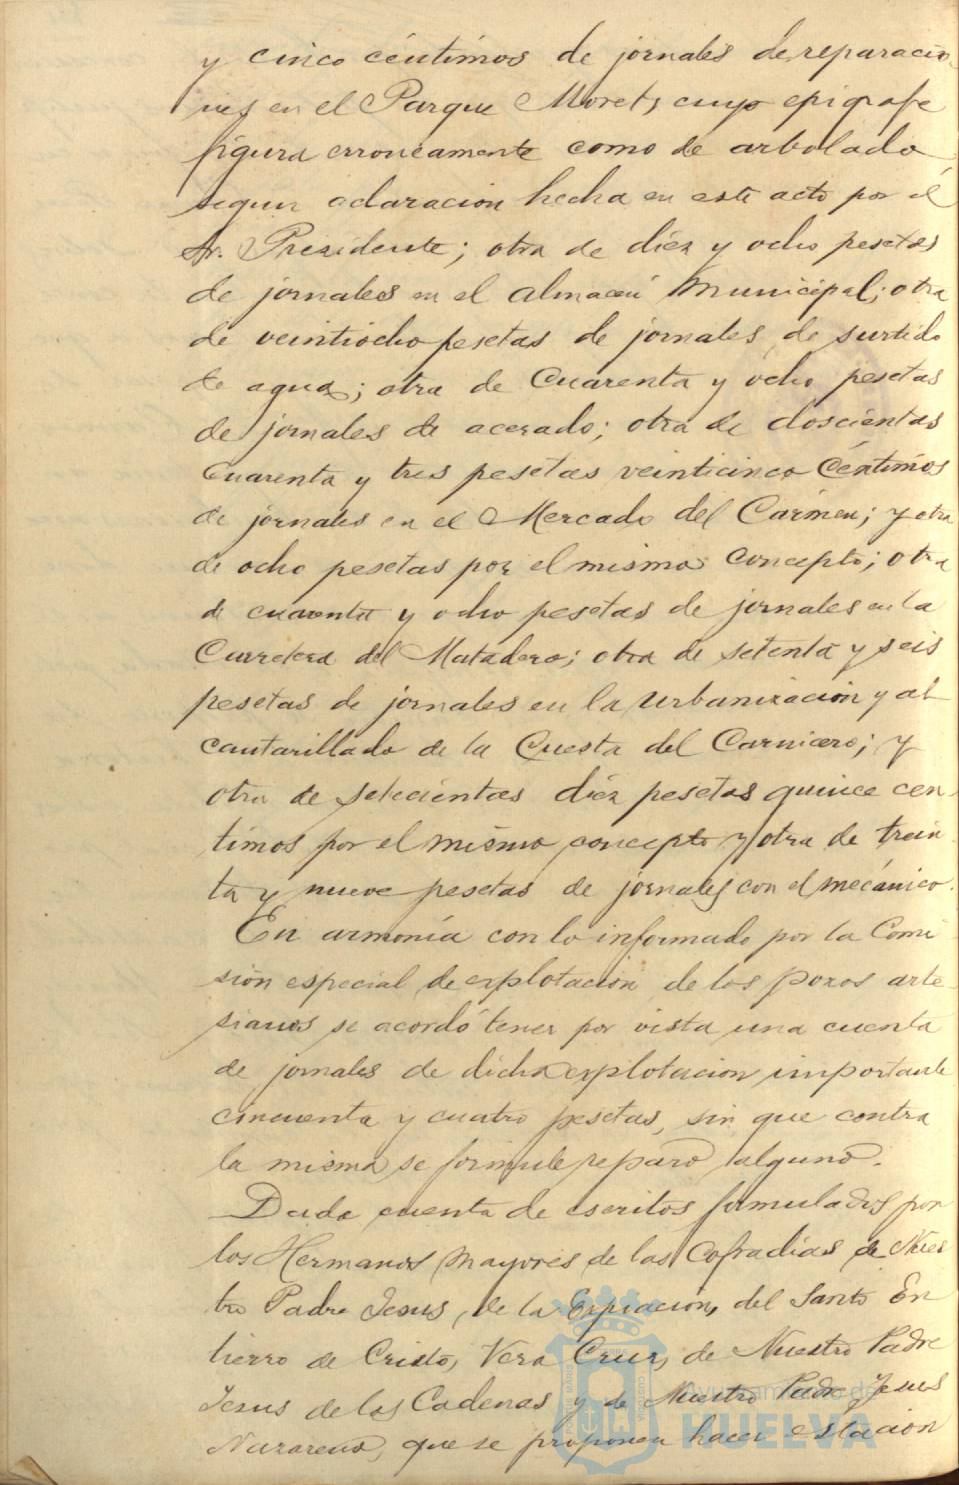 y cinco céntimos de jornales de reparacio
nes en el Parque Moret, cuyo epigrafe
figura erroneamente como de arbolado
segun aclaracion hecha en este acto por el
Sr. Presidente; otra de diez y ocho pesetas
de jornales en el almacén Municipal; otra
de veintiocho pesetas de jornales de surtido
de agua; otra de Cuarenta y ocho pesetas
de jornales de acerado; otra de doscientas
Cuarenta y tres pesetas veinticinco Céntimos
de jornales en el Mercado del Cármen; y otra
de ocho pesetas por el mismo concepto; otra
de cuarenta y ocho pesetas de jornales en la
Carretera del Matadero; otra de setenta y seis
pesetas de jornales en la urbanizacion y al
cantarillado de la Cuesta del Carnicero; y
otra de setecientas diez pesetas quince cen
timos por el mismo concepto y otra de trein
ta y nueve pesetas de jornales con el mecánico.
En armonía con lo informado por la Comi
sión especial de explotacion de los pozos arte-
sianos se acordó tener por vista una cuenta
de jornales de dicha explotacion importante
cincuenta y cuatro pesetas, sin que contra
la misma se formule reparo alguno.
Dada cuenta de escritos formulados por
los Hermanos Mayores de las Cofradias de Nues
tro Padre Jesus, de la Expiacion, del Santo En
tierro de Cristo, Vera Cruz, de Nuestro Padre
Jesus de las Cadenas y de Nuestro Padre Jesus
Nazareno, que se proponen hacer estacion
Ayuntamiento de
HUELVA